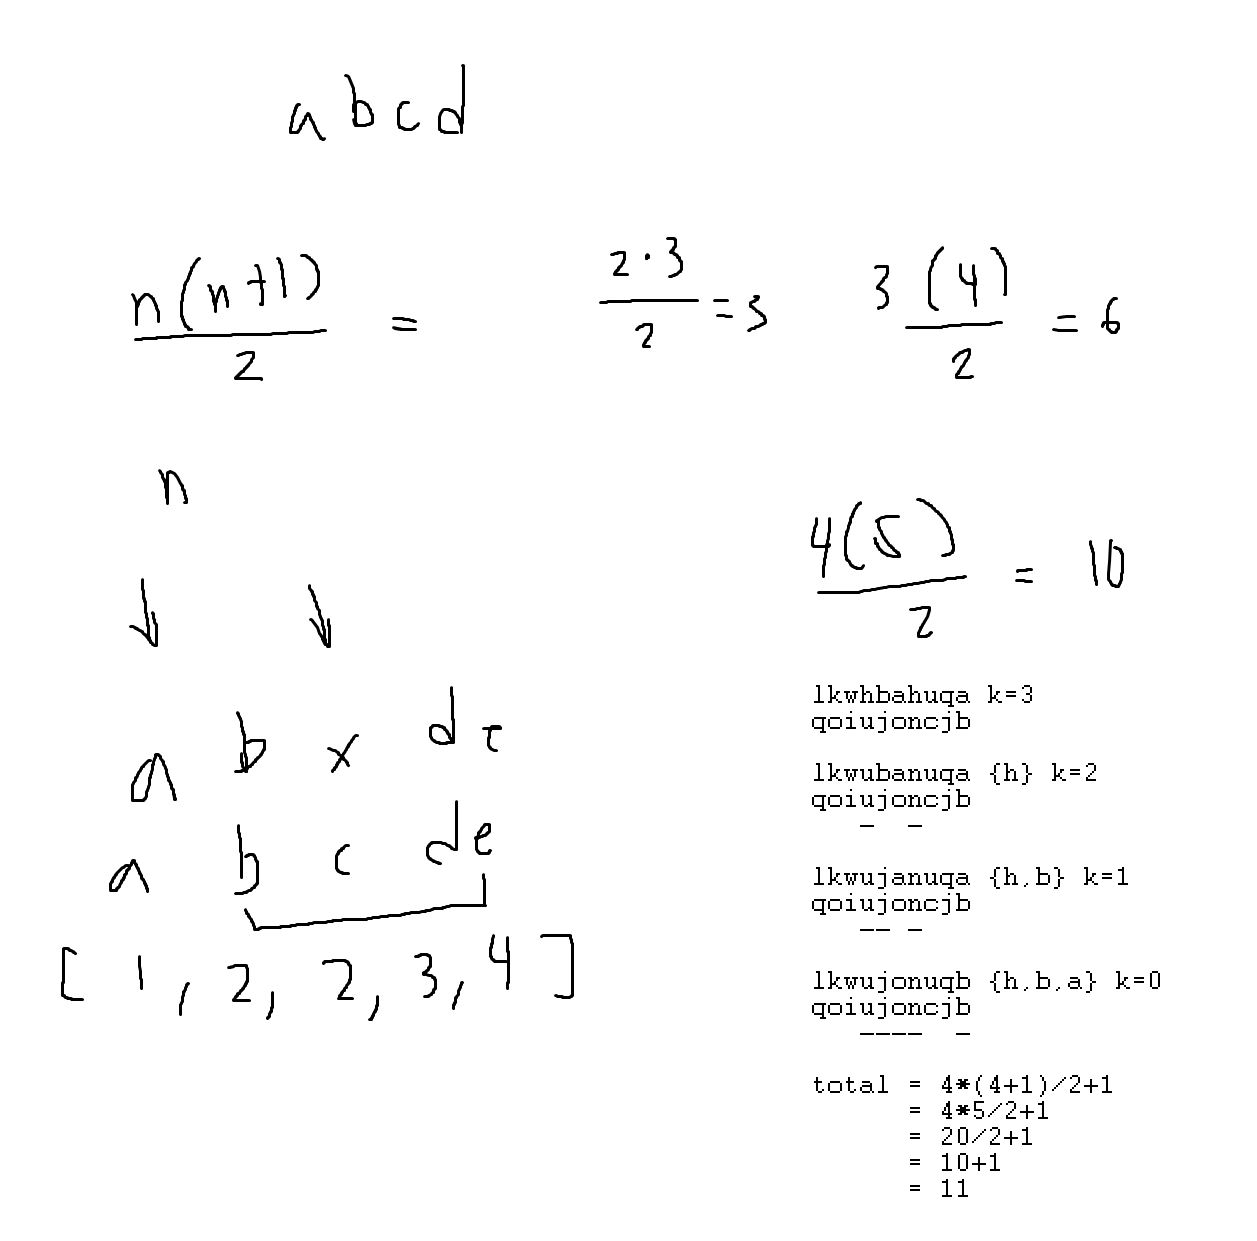 a b c d
n(n+1)/2 =
2·3/2 = 3
3(4)/2 = 6
n
4(5)/2 = 10
a b x d e
a b c d e
[ 1, 2, 2, 3, 4 ]
lkwhbahuqa k=3
qoiujoncjb
lkwubanuqa {h} k=2
qoiujoncjb
lkwujanuqa {h,b} k=1
qoiujoncjb
lkwujonuqb {h,b,a} k=0
qoiujoncjb
total = 4*(4+1)/2+1
= 4*5/2+1
= 20/2+1
= 10+1
= 11